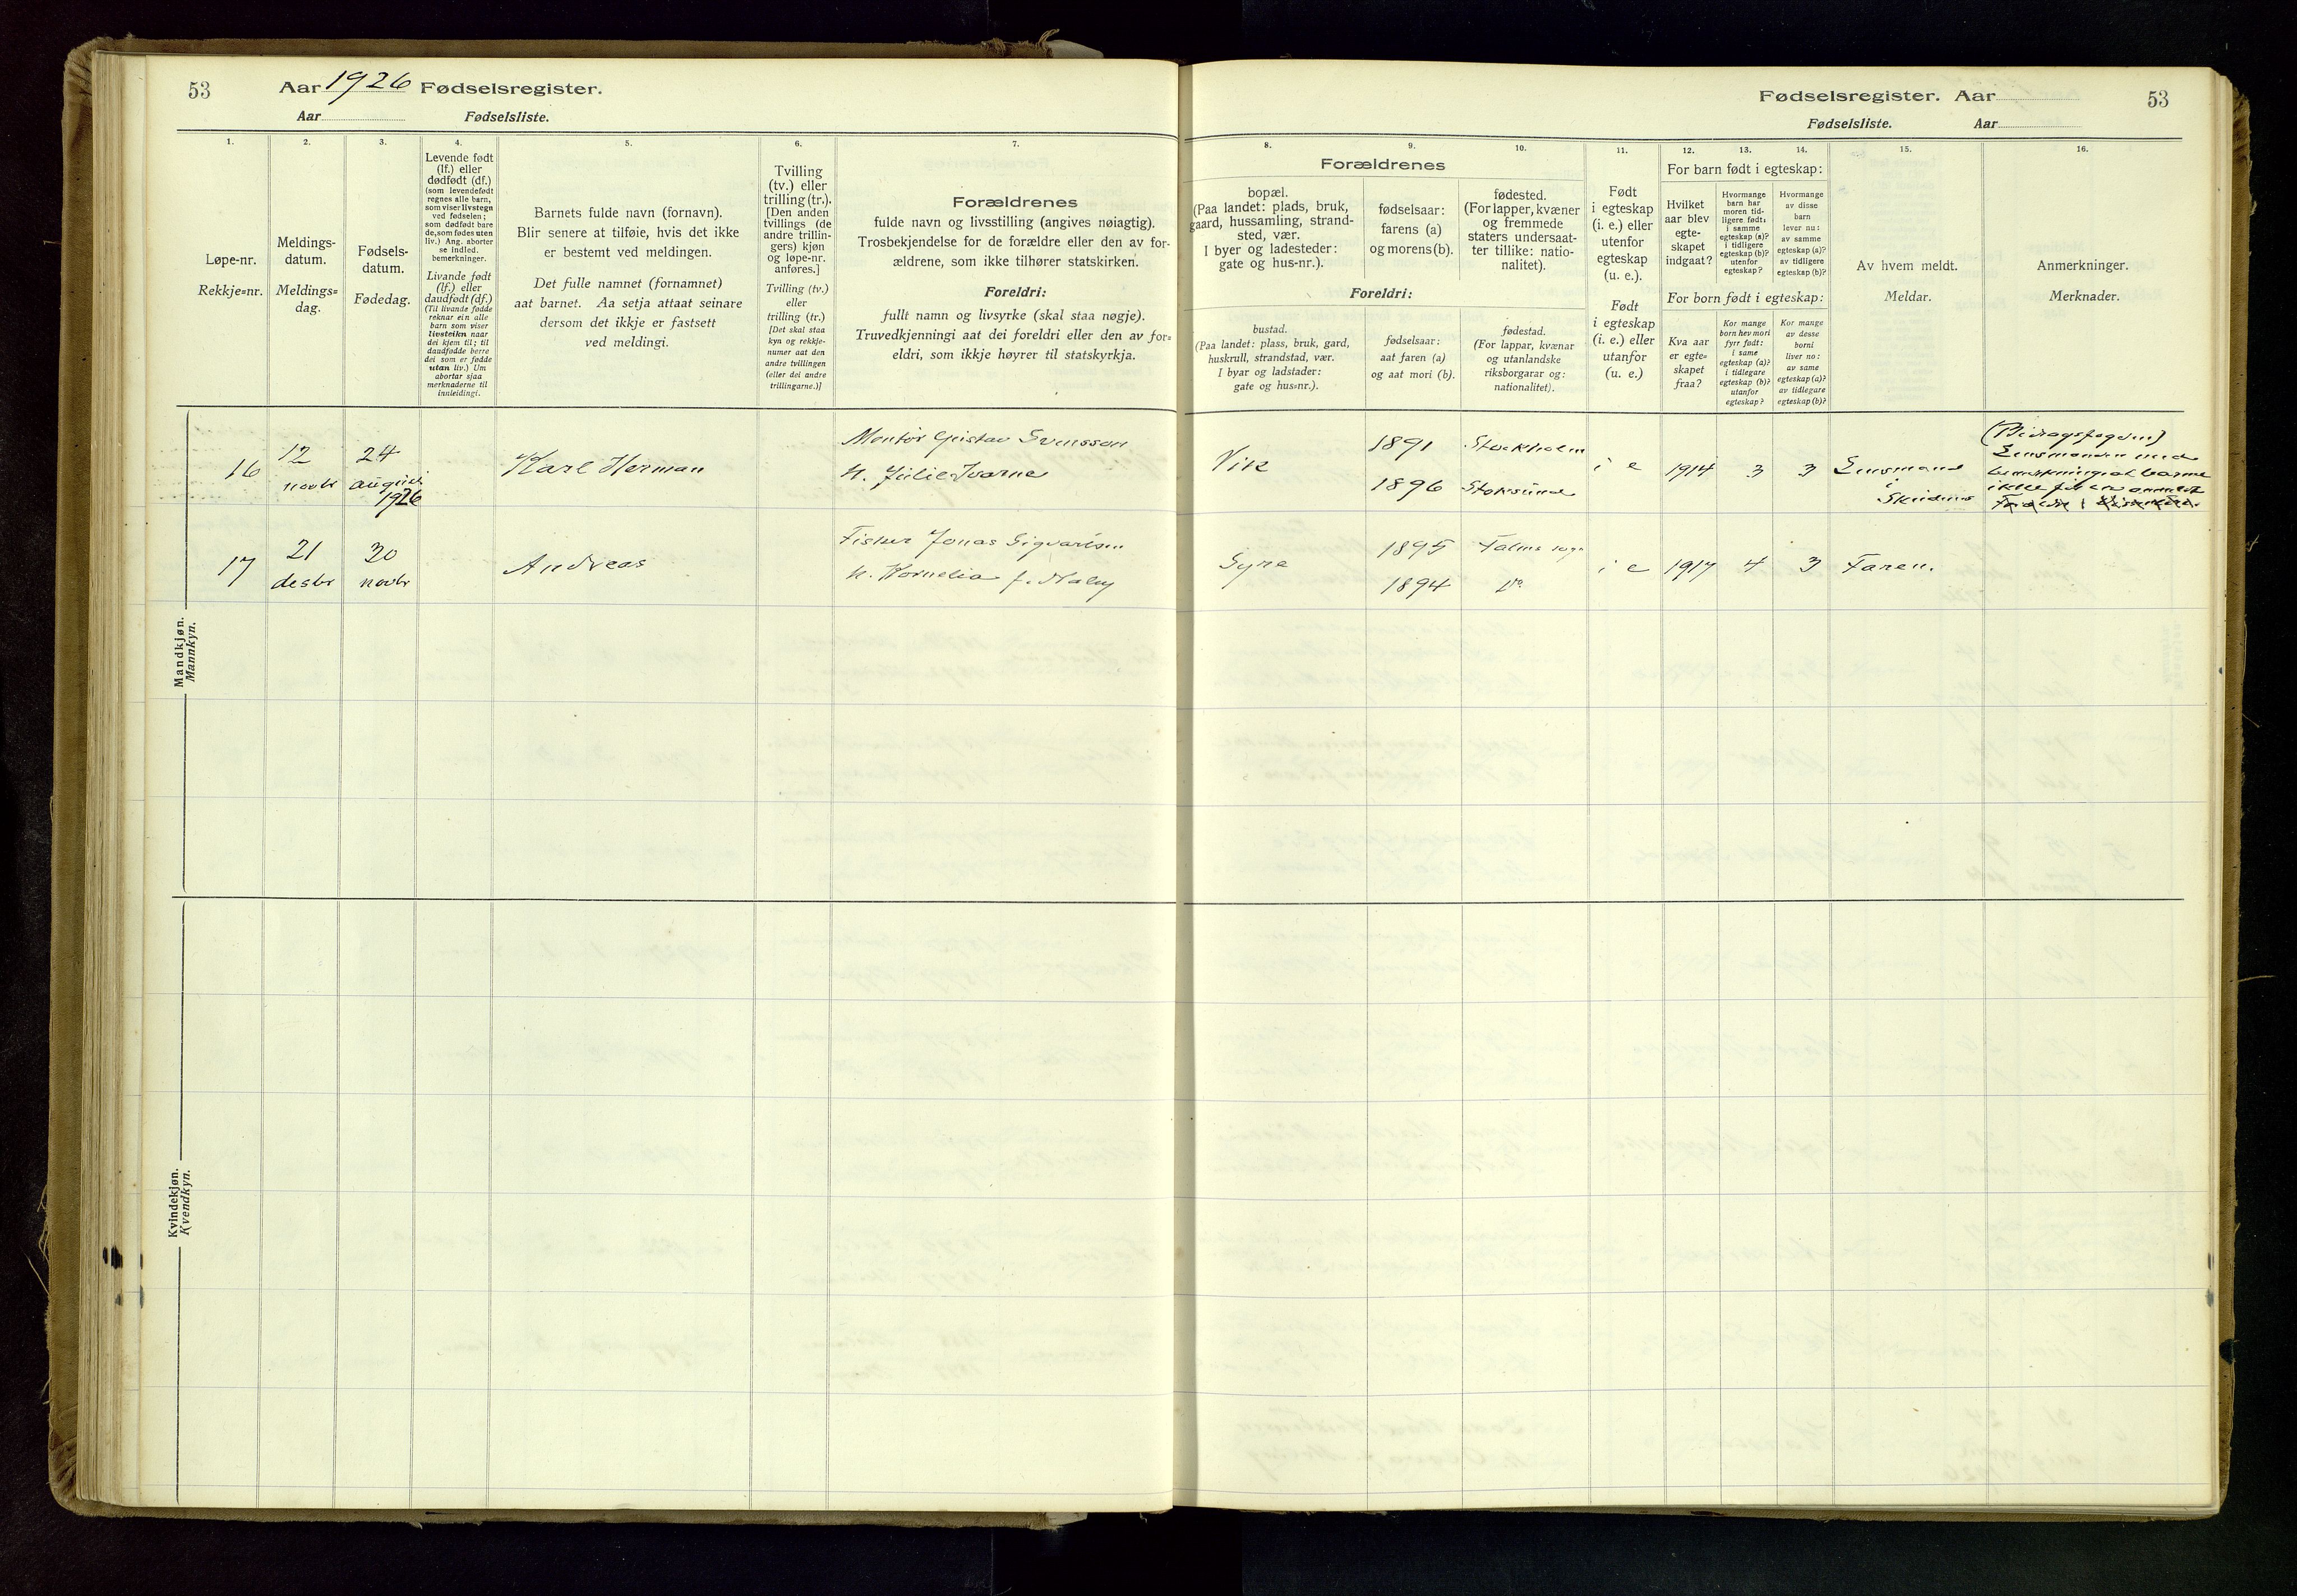 53
Aar 1926 Fødselsregister.
Aar Fødselsliste.
1.
2.
3.
4.
5.
6.
7.
Løpe-nr.
Rekkje=nr.
Meldings-
datum.
Meldings=
dag.
Fødsels-
datum.
Fødedag.
Levende født
(lf.) eller
dødfødt (df.)
(som levendefødt
regnes alle barn,
som viser livstegn
ved fødselen;
som dødfødt bare
de, som fødes uten
liv.) Ang. aborter
se indled.
bemerkninger.
Livande fødd
(lf.) eller
daudfødt (df.)
(Til livande fødde
reknar ein alle
barn som viser
livsteikn naar
dei kjem til; til
daudfødde berre
dei som er fødde
utan liv.) Um
abortar sjaa
merknaderne til
innleidingi.
Barnets fulde navn (fornavn).
Blir senere at tilføie, hvis det ikke
er bestemt ved meldingen.
Det fulle namnet (fornamnet)
aat barnet. Aa setja attaat seinare
dersom det ikkje er fastsett
ved meldingi.
Tvilling
(tv.) eller
trilling (tr.).
[Den anden
tvillings (de
andre trillin-
gers) kjøn
og løpe-nr.
anføres.]
Tvilling (tv.)
eller
trilling (tr.)
[Det skal staa
kyn og rekkje-
numer aat den
andre tvillingen
(eller dei andre
trillingarne.)]
Forældrenes
fulde navn og livsstilling (angives nøiagtig).
Trosbekjendelse for de forældre eller den av for-
ældrene, som ikke tilhører statskirken.
Foreldri:
fullt namn og livsyrke (skal staa nøgje).
Truvedkjenningi aat dei foreldri eller den av for=
eldri, som ikkje høyrer til statskyrkja.
Mandkjøn.
Mannkyn.
16
12
novbr
24
august
1926
Karl Herman
Montør Gustav Svensson
h. Julie Ivarna
17
21
desbr
30
novbr
Andreas
Fisker Jonas Sigvartsen
h. Kornelia f. Naley
Kvindekjøn.
Kvendkyn.
Fødselsregister. Aar 53
Fødselsliste. Aar
8.
9.
10.
11.
12.
13.
14.
15.
16.
Forældrenes
bopæl.
(Paa landet: plads, bruk,
gaard, hussamling, strand-
sted, vær.
I byer og ladesteder:
gate og hus-nr.).
fødselsaar:
farens (a)
og morens (b).
fødested.
(For lapper, kvæner
og fremmede
staters undersaat-
ter tillike: natio-
nalitet).
Foreldri:
bustad.
(Paa landet: plass, bruk, gard,
huskrull, strandstad, vær.
I byar og ladstader:
gate og hus=nr.).
fødselsaar:
aat faren (a)
og aat mori (b).
fødestad.
(For lappar, kvænar
og utanlandske
riksborgarar og:
nationalitet).
Født
i egteskap
(i. e.) eller
utenfor
egteskap
(u. e.).
Født
i egteskap
(i. e.) eller
utanfor
(u. e.)
For barn født i egteskap:
Hvilket
aar blev
egte-
skapet
indgaat?
Hvormange
barn har
moren tid-
ligere født:
i samme
egteskap (a)?
i tidligere
egteskap (b)?
utenfor
egteskap?
Hvormange
av disse
barn
lever nu:
av samme
egteskap (a)?
av tidligere
egteskap (b)?
For born født i egteskap:
Kva aar
er egte=
skapet
fraa?
Kor mange
born hev mori
fyrr født:
i same
egteskap (a)?
i tidlegare
egteskap (b)?
utanfor
egteskap?
Kor mange
av desse
borni
liver no:
av same
egteskap (a)?
av tidlegare
egteskap (b)?
Av hvem meldt.
Meldar.
Anmerkninger.
Merknader.
Vik
1891
1896
Stockholm
Stoksund
i e
1914
3
3
Lensmand
i
Skudenes
(Bidragsfogden)
Lensmanden med
ikke før er anmeldt
Syre
1895
1894
Falnes sogn
do
i e
1917
4
3
Faren.